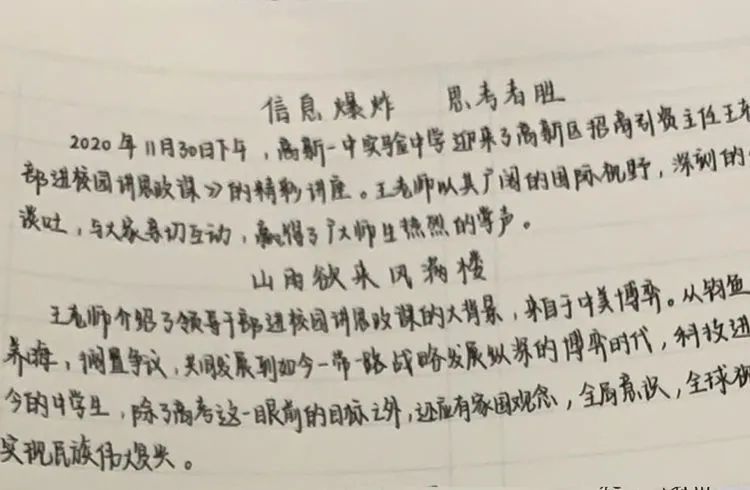 信息爆炸 思考者胜
2020年11月30日下午，高新一中实验中学迎来了高新区招商引资主任王老
部进校园讲思政课》的精彩讲座。王老师以其广阔的国际视野，深刻的
谈吐，与大家亲切互动，赢得了广大师生热烈的掌声。
山雨欲来风满楼
王老师介绍了领导干部进校园讲思政课的大背景，来自于中美博弈。从钓鱼
养海，搁置争议，共同发展到如今一带一路战略发展纵深的博弈时代，科技进
今的中学生，除了高考这一眼前的目标之外，还应有家国观念，全局意识，全球
实现民族伟大复兴。